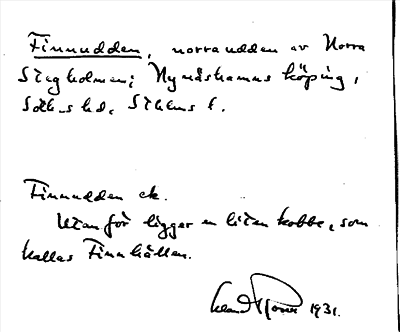 Finnudden, norra udden av Norra
Stegholmen; Nynäshamns köping,
Soth.s hd, Sthlms l.
Finnudden ek.
Utanför ligger en liten kobbe, som
kallas Finnhällen.
1931.